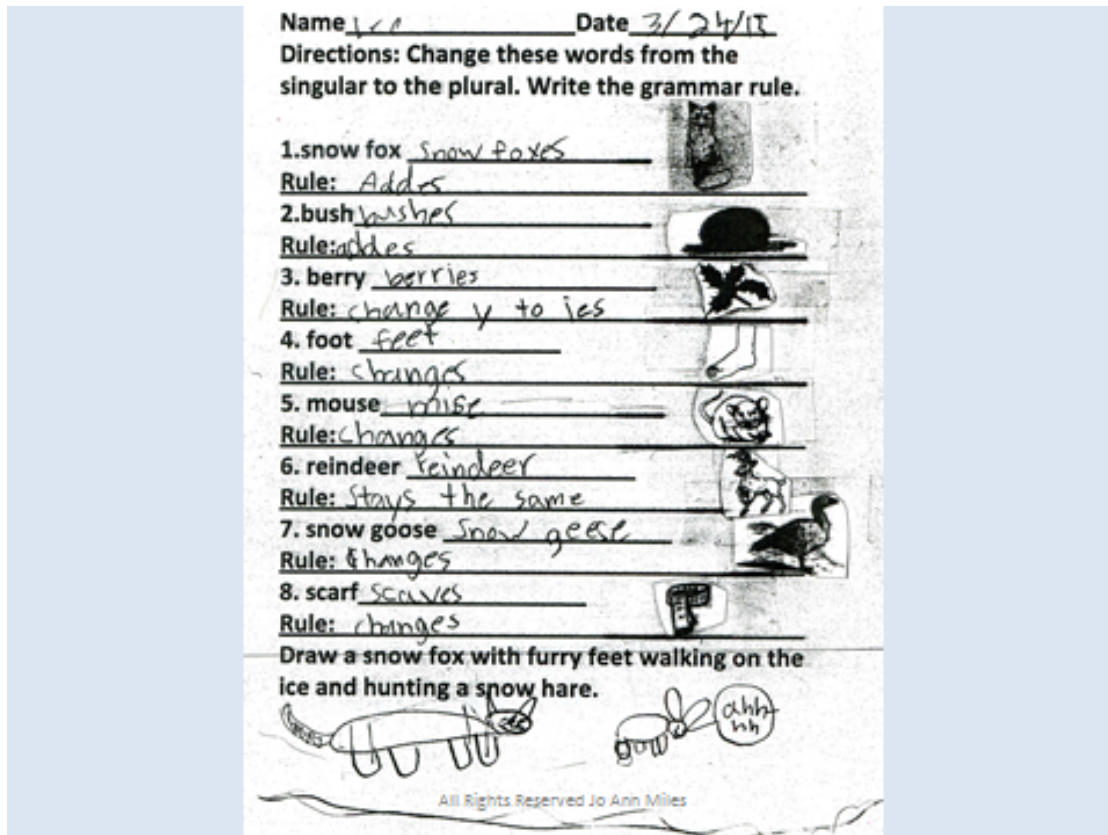 Name Date 3/24/15
Directions: Change these words from the
singular to the plural. Write the grammar rule.
1.snow fox snow foxes
Rule: Addes
2.bush bushes
Rule:addes
3. berry berries
Rule: change y to ies
4. foot feet
Rule: changes
5. mouse mise
Rule:changes
6. reindeer reindeer
Rule: Stays the same
7. snow goose snow geese
Rule: changes
8. scarf scaves
Rule: changes
Draw a snow fox with furry feet walking on the
ice and hunting a snow hare.
ahh
hh
All Rights Reserved Jo Ann Miles